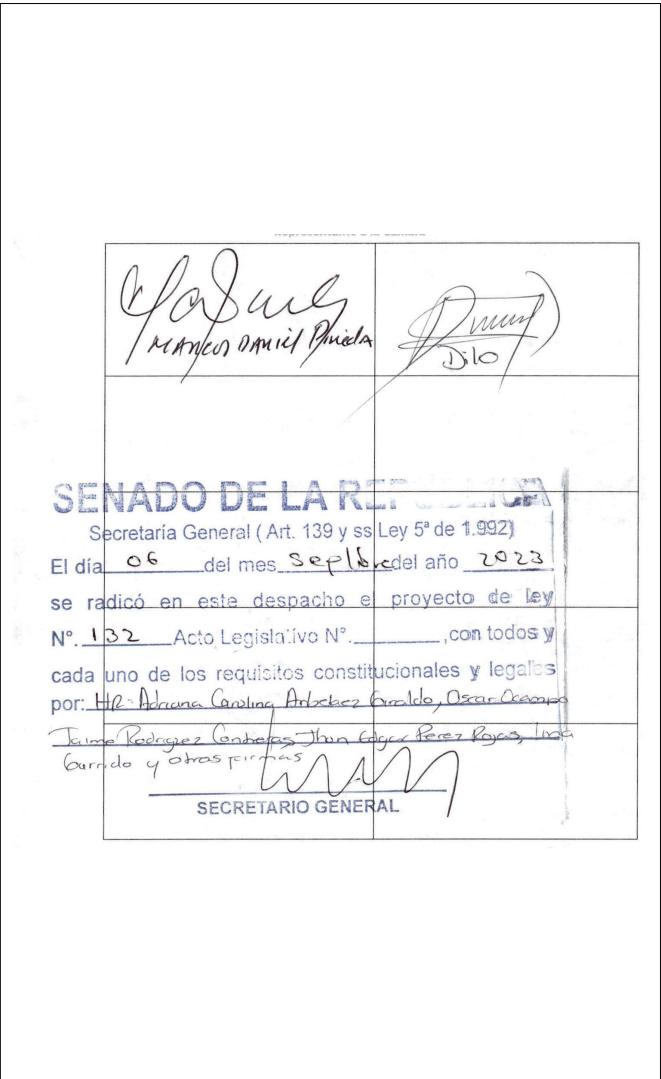 MARCOS DANIEL Pineda
Dilo
SENADO DE LA REPUBLICA
Secretaría General ( Art. 139 y ss Ley 5ª de 1.992)
El día 06 del mes Septbre del año 2023
se radicó en este despacho el proyecto de ley
N°. 132 Acto Legislativo N°. ,con todos y
cada uno de los requisitos constitucionales y legales
por: HR- Adriana Carolina Arbelaez Giraldo, Oscar Ocampo
Jaime Rodriguez Contreras, Jhon Edgar Perez Rojas,
Garrido y otras firmas
SECRETARIO GENERAL